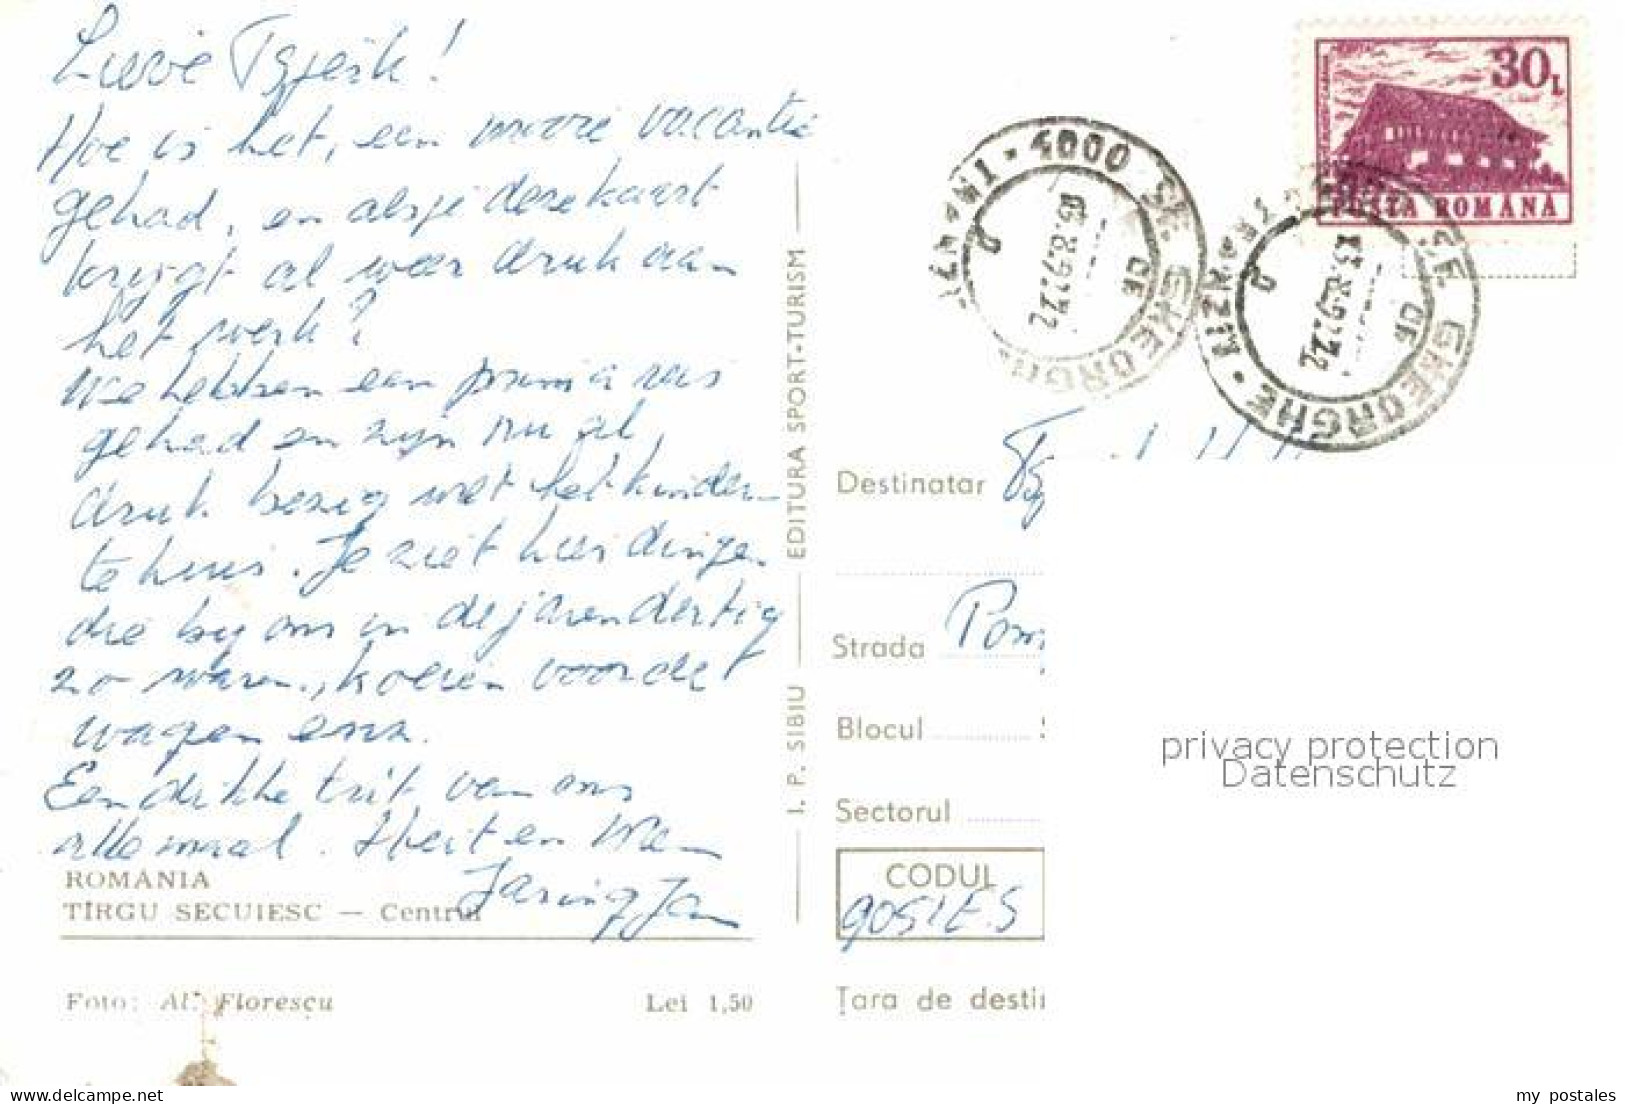 Lieve Tsjeik!
Hoe is het, een mooie vacantie
gehad, en alsje deze kaart
krijgt al weer druk aan
het werk?
We hebben een prima reis
gehad en zijn nu al
druk bezig met het kinder-
tehuis. Je ziet hier dingen
die bij ons in de jaren dertig
zo waren, koeien voor de
wagen enz.
Een dikke tuit van ons
allemaal. Heit en Mem
Jan
ROMÂNIA
TÎRGU SECUIESC — Centrul
Foto: Al. Florescu
Lei 1,50
I. P. SIBIU
EDITURA SPORT-TURISM
30L
POȘTA ROMÂNA
4000 SF. GHEORGHE
SF. GHEORGHE
Destinatar
Strada Pom
Blocul
Sectorul
CODUL
9051ES
Țara de desti
privacy protection
Datenschutz
my postales